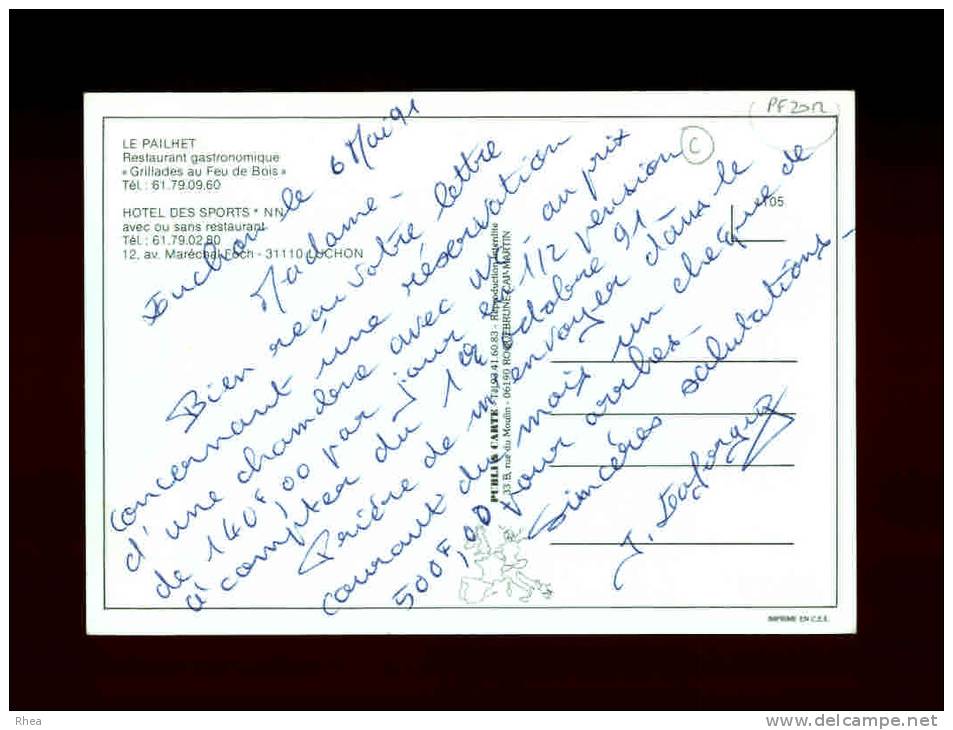 LE PAILHET
Restaurant gastronomique
« Grillades au Feu de Bois »
Tél. : 61.79.09.60
HOTEL DES SPORTS * NN
avec ou sans restaurant
Tél. : 61.79.02.80
12, av. Maréchal Foch - 31110 LUCHON
PF20R
C
105
Luchon le 6 Mai 91
Madame -
Bien reçu votre lettre
concernant une réservation
d'une chambre avec au prix
de 140F,00 par jour et 1/2 pension
à compter du 1er Octobre 91 -
Prière de m'envoyer dans le
courant du mois un chèque de
500F,00 pour arrhes -
Sincères salutations -
J. Laforgue
PUBLI'S CARTE - Tél. 93.41.60.83 - Reproduction interdite
33 B, rue du Moulin - 06190 ROQUEBRUNE-CAP-MARTIN
IMPRIME EN C.E.E.
Rhea
www.delcampe.net